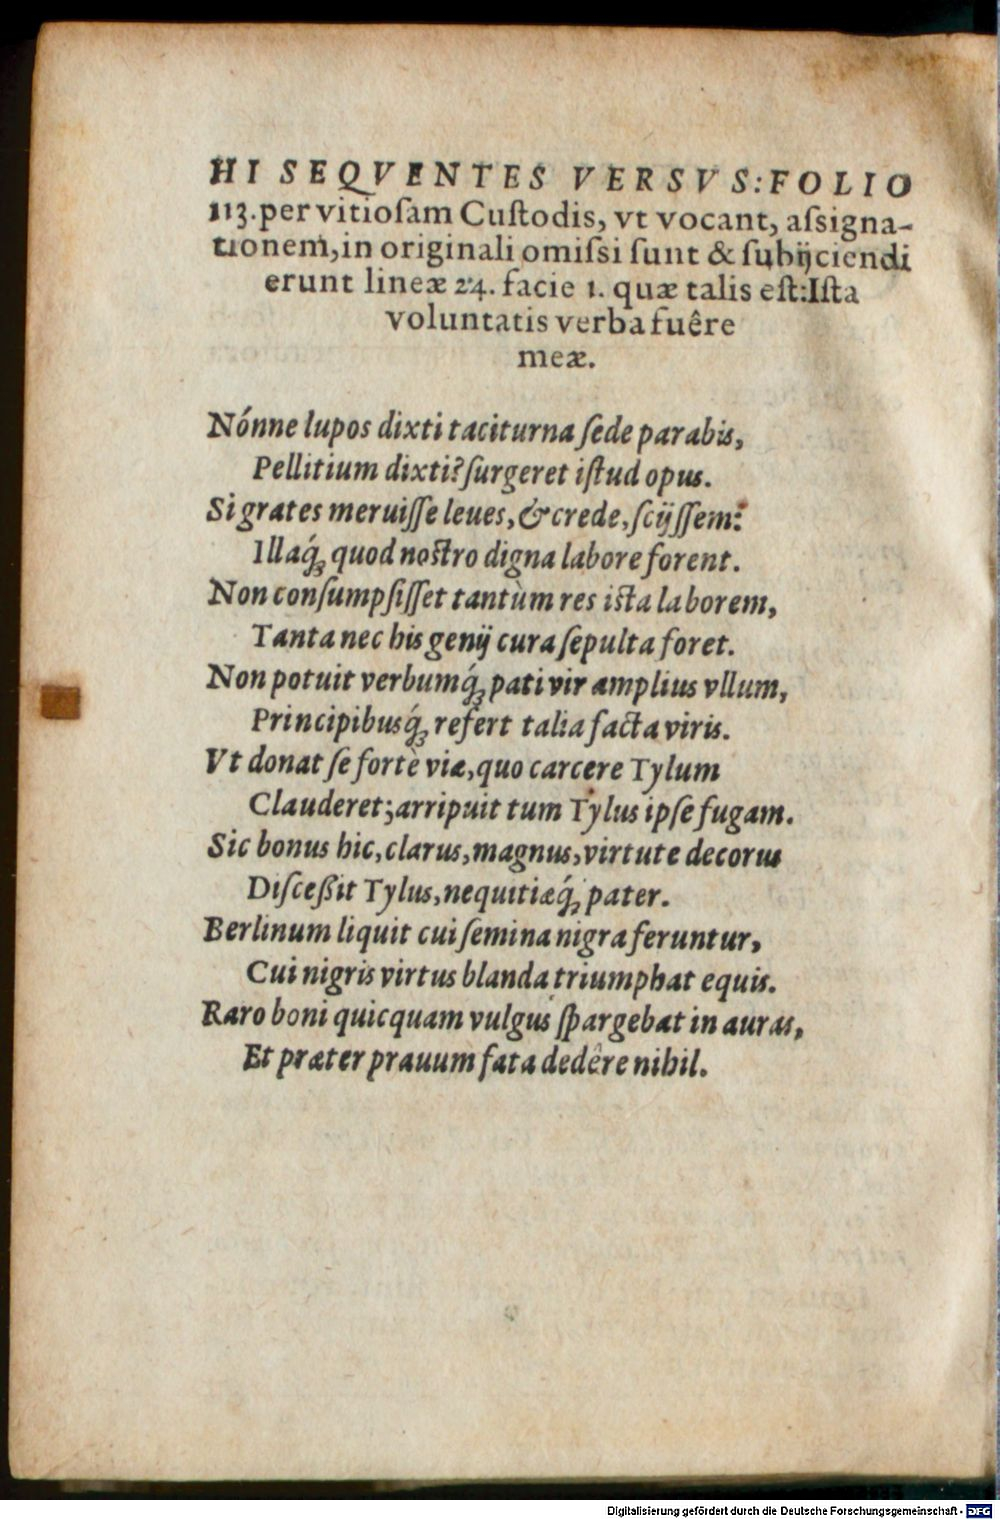 HI SEQVENTES VERSVS: FOLIO
113. per vitioſam Cuſtodis, vt vocant, aſsigna-
tionem, in originali omiſsi ſunt & ſubijciendi
erunt lineæ 24. facie 1. quæ talis eſt: Iſta
voluntatis verba fuêre
meæ.
Nónne lupos dixti taciturna ſede parabis,
Pellitium dixti? ſurgeret iſtud opus.
Si grates meruiſſe leues, & crede, ſcijſſem:
Illaq́ꝫ quod noſtro digna labore forent.
Non conſumpſiſſet tantùm res iſta laborem,
Tanta nec his genij cura ſepulta foret.
Non potuit verbumq́ꝫ pati vir amplius vllum,
Principibusq́ꝫ refert talia facta viris.
Vt donat ſe fortè viæ, quo carcere Tylum
Clauderet; arripuit tum Tylus ipſe fugam.
Sic bonus hic, clarus, magnus, virtute decorus
Diſceßit Tylus, nequitiæq́ꝫ pater.
Berlinum liquit cui ſemina nigra feruntur,
Cui nigris virtus blanda triumphat equis.
Raro boni quicquam vulgus ſpargebat in auras,
Et præter prauum fata dedêre nihil.
Digitalisierung gefördert durch die Deutsche Forschungsgemeinschaft - DFG